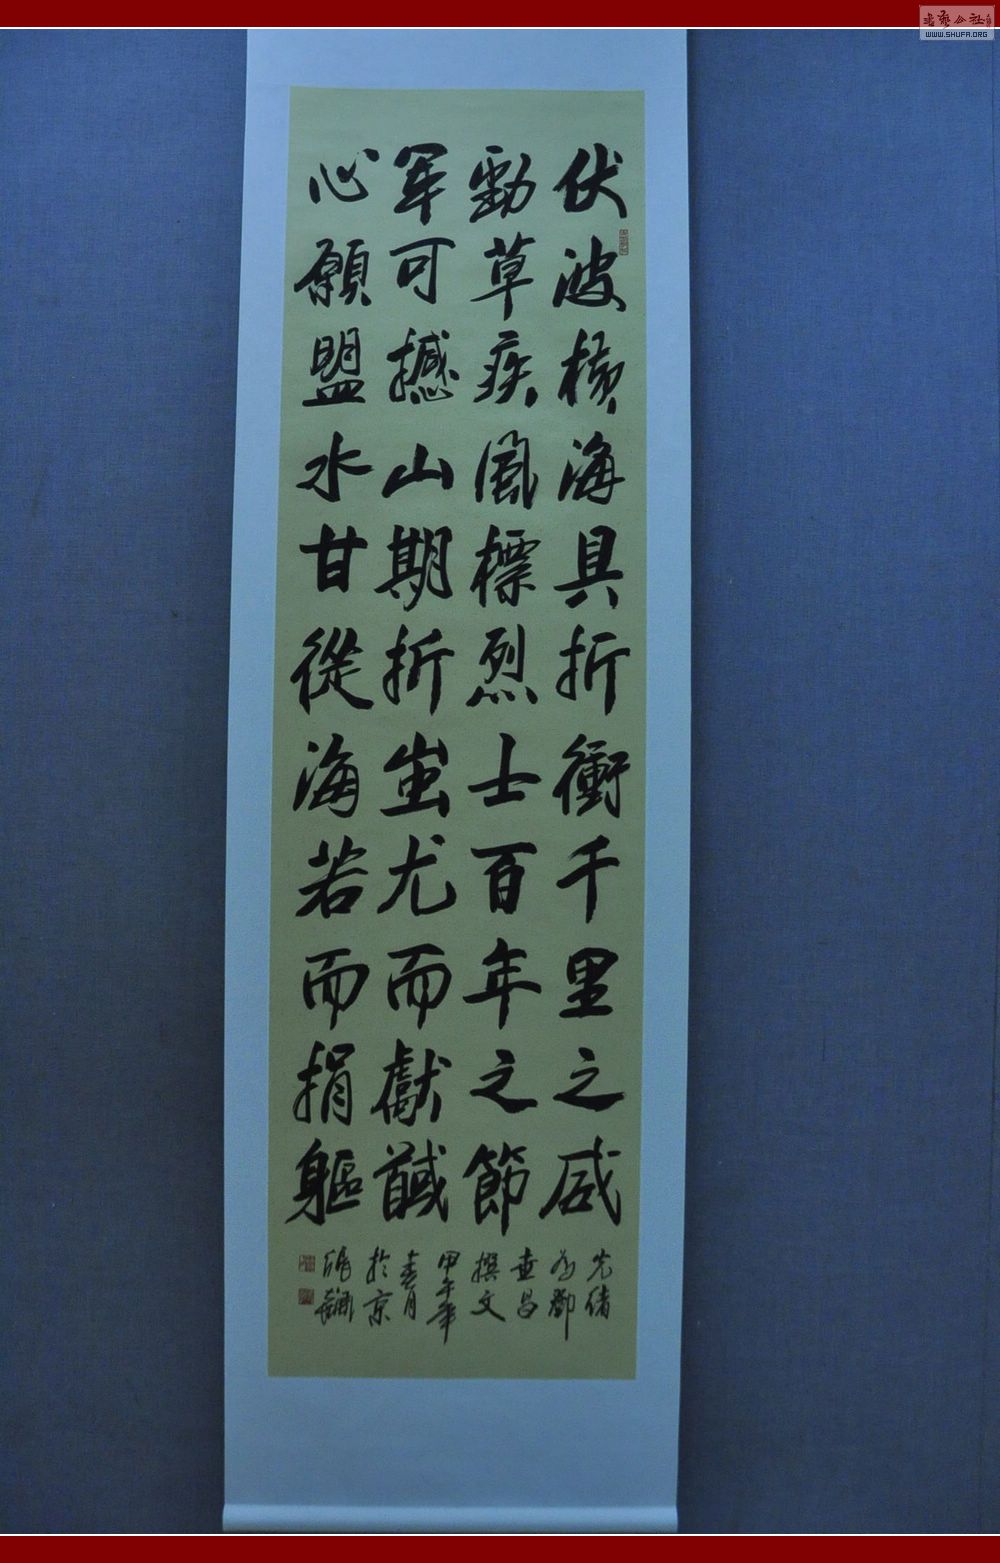 伏波横海具折衝千里之威
勁草疾風標烈士百年之節
軍可撼山期折蚩尤而獻馘
心願盟水甘從海若而捐軀
光緒
為鄧
壷昌
撰文
甲午年
春月
於京
WWW.SHUFA.ORG